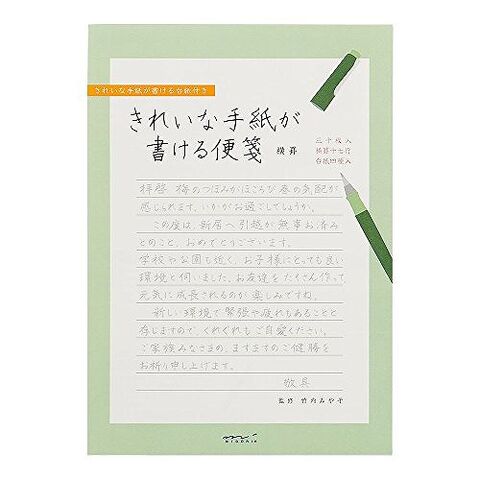 きれいな手紙が書ける台紙付き
きれいな手紙が
書ける便箋 横罫
三十枚入
横罫十七行
台紙四種入
拝啓 梅のつぼみがほころび春の気配が
感じられます。いかがお過ごしでしょうか。
この度は、新居へ引越が無事お済み
とのこと、おめでとうございます。
学校や公園も近く、お子様にとっても良い
環境と伺いました。お友達をたくさん作って
元気に成長されるのが楽しみですね。
新しい環境で緊張や疲れもあることと
存じますので、くれぐれもご自愛ください。
ご家族みなさまの、ますますのご健勝を
お祈り申し上げます。
敬具
監修 竹内みや子
MIDORI